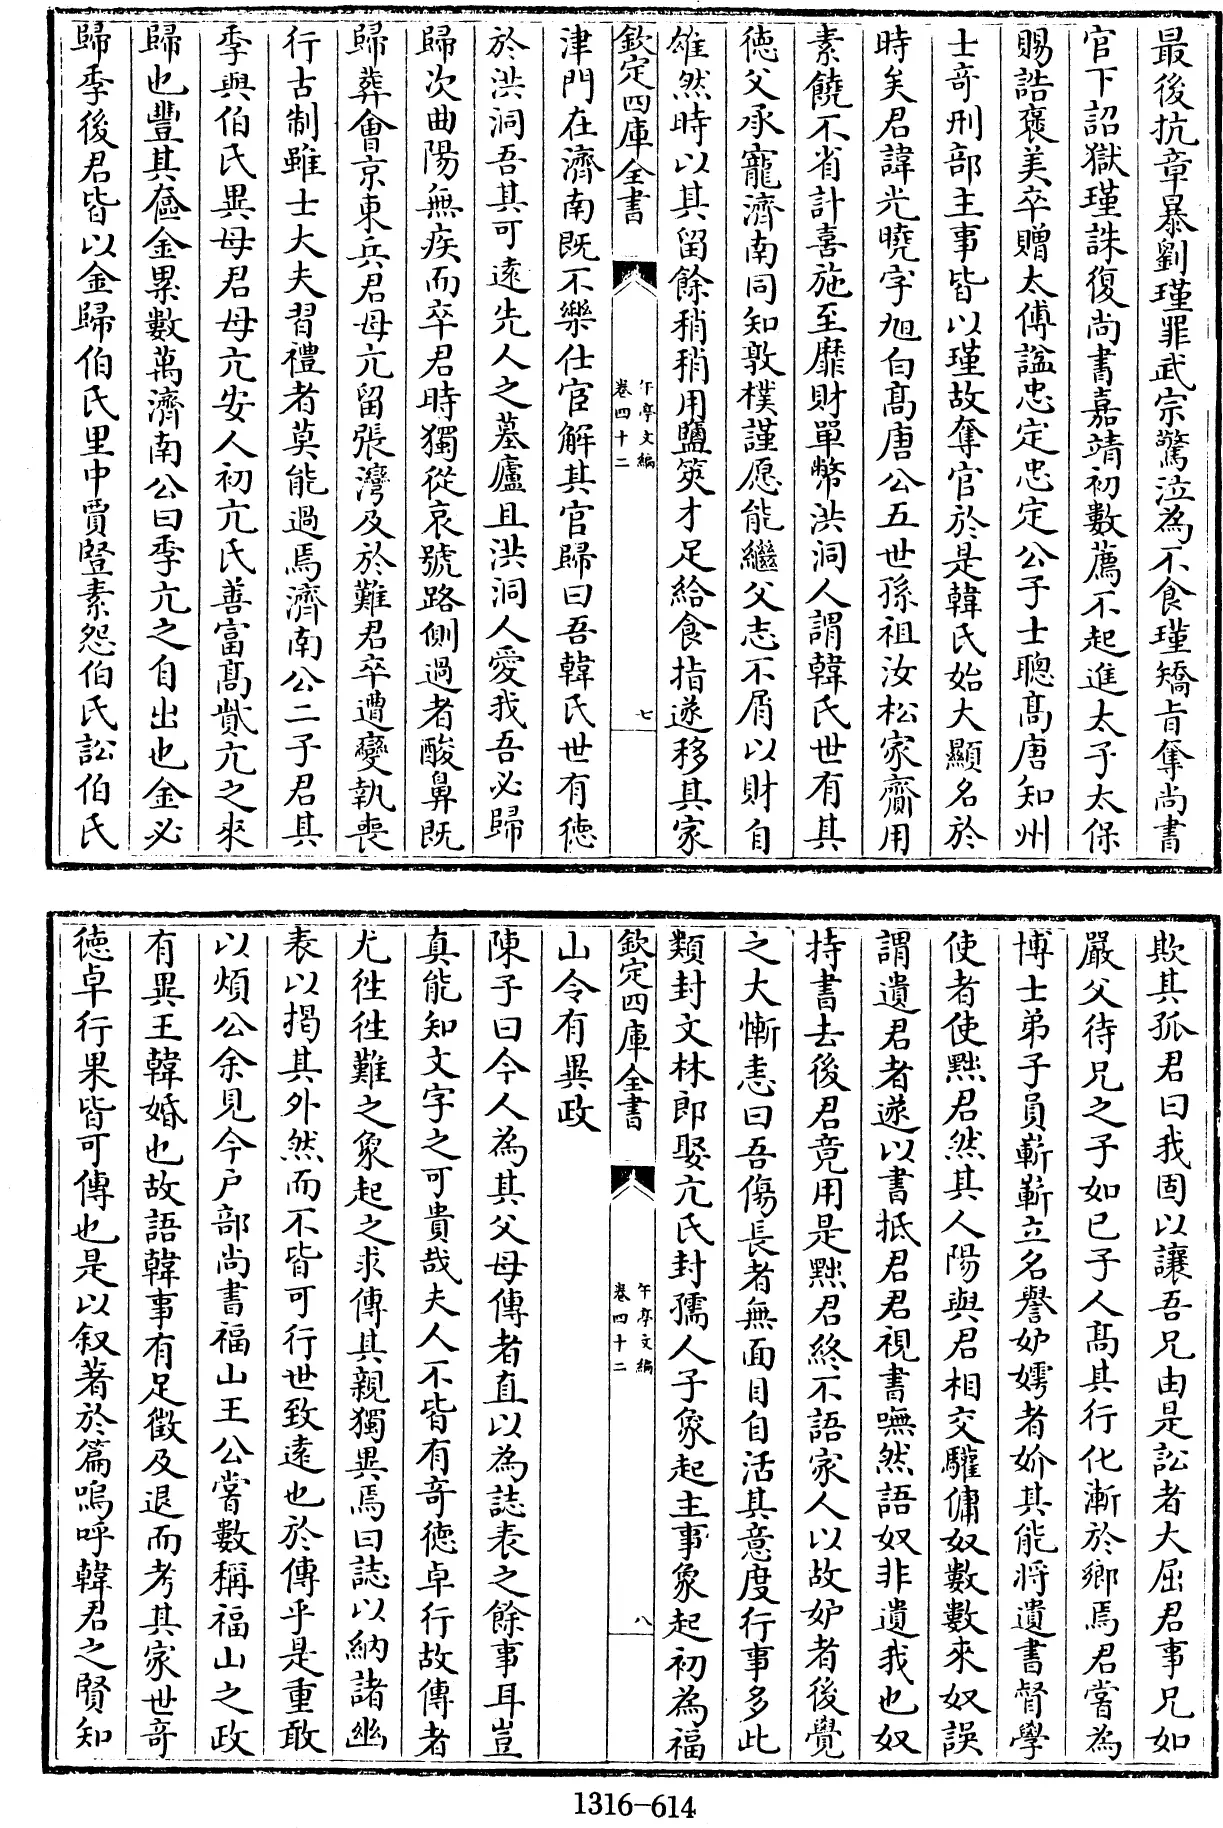 最後抗章暴劉瑾罪武宗驚泣為不食瑾矯旨奪尚書
官下詔獄瑾誅復尚書嘉靖初數薦不起進太子太保
賜誥褒美卒贈太傅諡忠定忠定公子士聰高唐知州
士奇刑部主事皆以瑾故奪官於是韓氏始大顯名於
時矣君諱光曉字旭白高唐公五世孫祖汝松家齎用
素饒不省計喜施至靡財單幣洪洞人謂韓氏世有其
德父承寵濟南同知敦樸謹愿能繼父志不屑以財自
雄然時以其留餘稍稍用鹽筴才足給食指遂移其家
欽定四庫全書
午亭文編
卷四十二
七
津門在濟南既不樂仕宦解其官歸曰吾韓氏世有德
於洪洞吾其可遠先人之墓廬且洪洞人愛我吾必歸
歸次曲陽無疾而卒君時獨從哀號路側過者酸鼻既
歸葬會京東兵君母亢留張灣及於難君卒遭變執喪
行古制雖士大夫習禮者莫能過焉濟南公二子君其
季與伯氏異母君母亢安人初亢氏善富高貲亢之來
歸也豐其奩金累數萬濟南公曰季亢之自出也金必
歸季後君皆以金歸伯氏里中賈豎素怨伯氏訟伯氏
欺其孤君曰我固以讓吾兄由是訟者大屈君事兄如
嚴父待兄之子如已子人高其行化漸於鄉焉君嘗為
博士弟子員嶄嶄立名譽妒嫮者妎其能將遺書督學
使者使黜君然其人陽與君相交驩傭奴數數來奴誤
謂遺君者遂以書抵君君視書嘸然語奴非遺我也奴
持書去後君竟用是黜君終不語家人以故妒者後覺
之大慚恚曰吾傷長者無面目自活其意度行事多此
類封文林郎娶亢氏封孺人子象起主事象起初為福
欽定四庫全書
午亭文編
卷四十二
八
山令有異政
陳子曰今人為其父母傳者直以為誌表之餘事耳豈
真能知文字之可貴哉夫人不皆有奇德卓行故傳者
尤徃徃難之象起之求傳其親獨異焉曰誌以納諸幽
表以揭其外然而不皆可行世致遠也於傳乎是重敢
以煩公余見今户部尚書福山王公嘗數稱福山之政
有異王韓婚也故語韓事有足徵及退而考其家世奇
德卓行果皆可傳也是以叙著於篇嗚呼韓君之賢知
1316-614